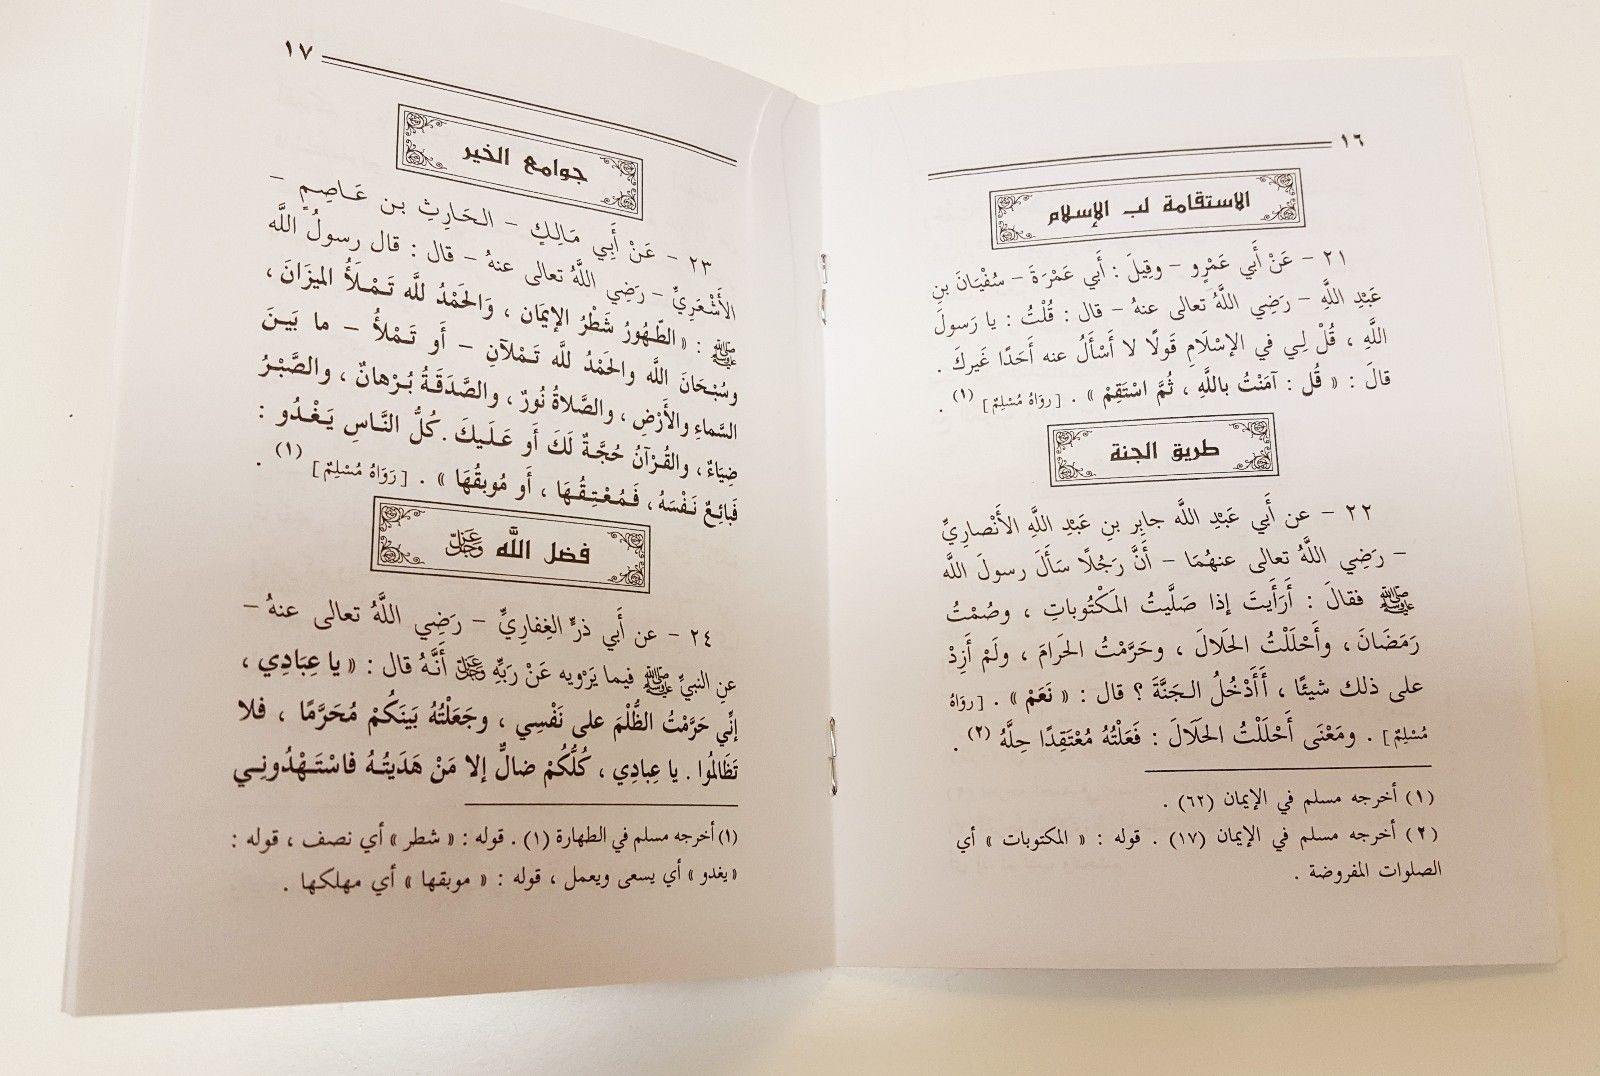 ١٦
الاستقامة لب الإسلام
٢١ - عَنْ أَبي عَمْرٍو - وقِيلَ : أَبي عَمْرَةَ - سُفْيَانَ بنِ
عَبْدِ اللَّهِ - رَضِي اللَّهُ تعالى عنهُ - قال : قُلْتُ : يا رَسولَ
اللَّهِ ، قُلْ لِي في الإسْلَامِ قَولًا لا أَسْأَلُ عنه أَحَدًا غَيركَ .
قالَ : « قُل : آمَنْتُ باللَّهِ ، ثُمَّ اسْتَقِمْ » . [رواهُ مُسْلِمٌ] (١) .
طريق الجنة
٢٢ - عن أَبي عَبْدِ اللَّه جابِر بنِ عَبْدِ اللَّهِ الأَنْصارِيِّ
- رَضِي اللَّهُ تعالى عنهُمَا - أَنَّ رَجُلًا سَأَلَ رسولَ اللَّه
ﷺ فقالَ : أَرَأَيتَ إذا صَلَّيتُ المَكْتُوباتِ ، وصُمْتُ
رَمَضَانَ ، وأَحْلَلْتُ الحَلالَ ، وحَرَّمْتُ الحَرامَ ، ولَمْ أَزِدْ
على ذلك شيئًا ، أَأَدْخُلُ الـجَنَّةَ ؟ قال : « نَعَمْ » . [رواهُ
مُسْلِمٌ] . ومَعْنَى أَحْلَلْتُ الحَلَالَ : فَعَلْتُهُ مُعْتَقِدًا حِلَّهُ (٢) .
(١) أخرجه مسلم في الإيمان (٦٢) .
(٢) أخرجه مسلم في الإيمان (١٧) . قوله : « المكتوبات » أي
الصلوات المفروضة .
١٧
جوامع الخير
٢٣ - عَنْ أَبِي مَالِكٍ - الـحَارِثِ بن عَاصِمٍ -
الأَشْعَرِيِّ - رَضِي اللَّهُ تعالى عنهُ - قال : قال رسولُ اللَّه
ﷺ : « الطَّهُورُ شَطْرُ الإيمَان ، وَالحَمْدُ للَّه تَمْلَأُ الميزَانَ ،
وسُبْحَانَ اللَّه والحَمْدُ للَّه تَمْلآنِ - أَو تَمْلأُ - ما بَيـنَ
السَّماءِ والأَرْضِ ، والصَّلاةُ نُورٌ ، والصَّدَقَةُ بُرْهانٌ ، والصَّبْرُ
ضِيَاءٌ ، والقُرْآنُ حُجَّةٌ لَكَ أَو عَلَيكَ . كُلُّ النَّاسِ يَغْدُو :
فَبَائِعٌ نَفْسَهُ ، فَمُعْتِقُهَا ، أَو مُوبقُهَا » . [رَوَاهُ مُسْلِمٌ] (١) .
فضل اللَّه عَزَّ وَجَلَّ
٢٤ - عن أَبي ذرٍّ الغِفاريِّ - رَضِي اللَّهُ تعالى عنهُ -
عنِ النبيِّ ﷺ فيما يَرْويه عَنْ رَبِّهِ عَزَّ وَجَلَّ أَنَّهُ قال : « يا عِبَادِي ،
إنِّي حَرَّمْتُ الظُّلْمَ على نَفْسِي ، وجَعَلْتُهُ بَينَكُمْ مُحَرَّمًا ، فلا
تَظَالمُوا . يا عِبادِي ، كُلُّكُمْ ضالٌّ إلا مَنْ هَدَيتُهُ فاسْتَهْدُونِـي
(١) أخرجه مسلم في الطهارة (١) . قوله : « شطر » أي نصف ، قوله :
« يغدو » أي يسعى ويعمل ، قوله : « موبقها » أي مهلكها .